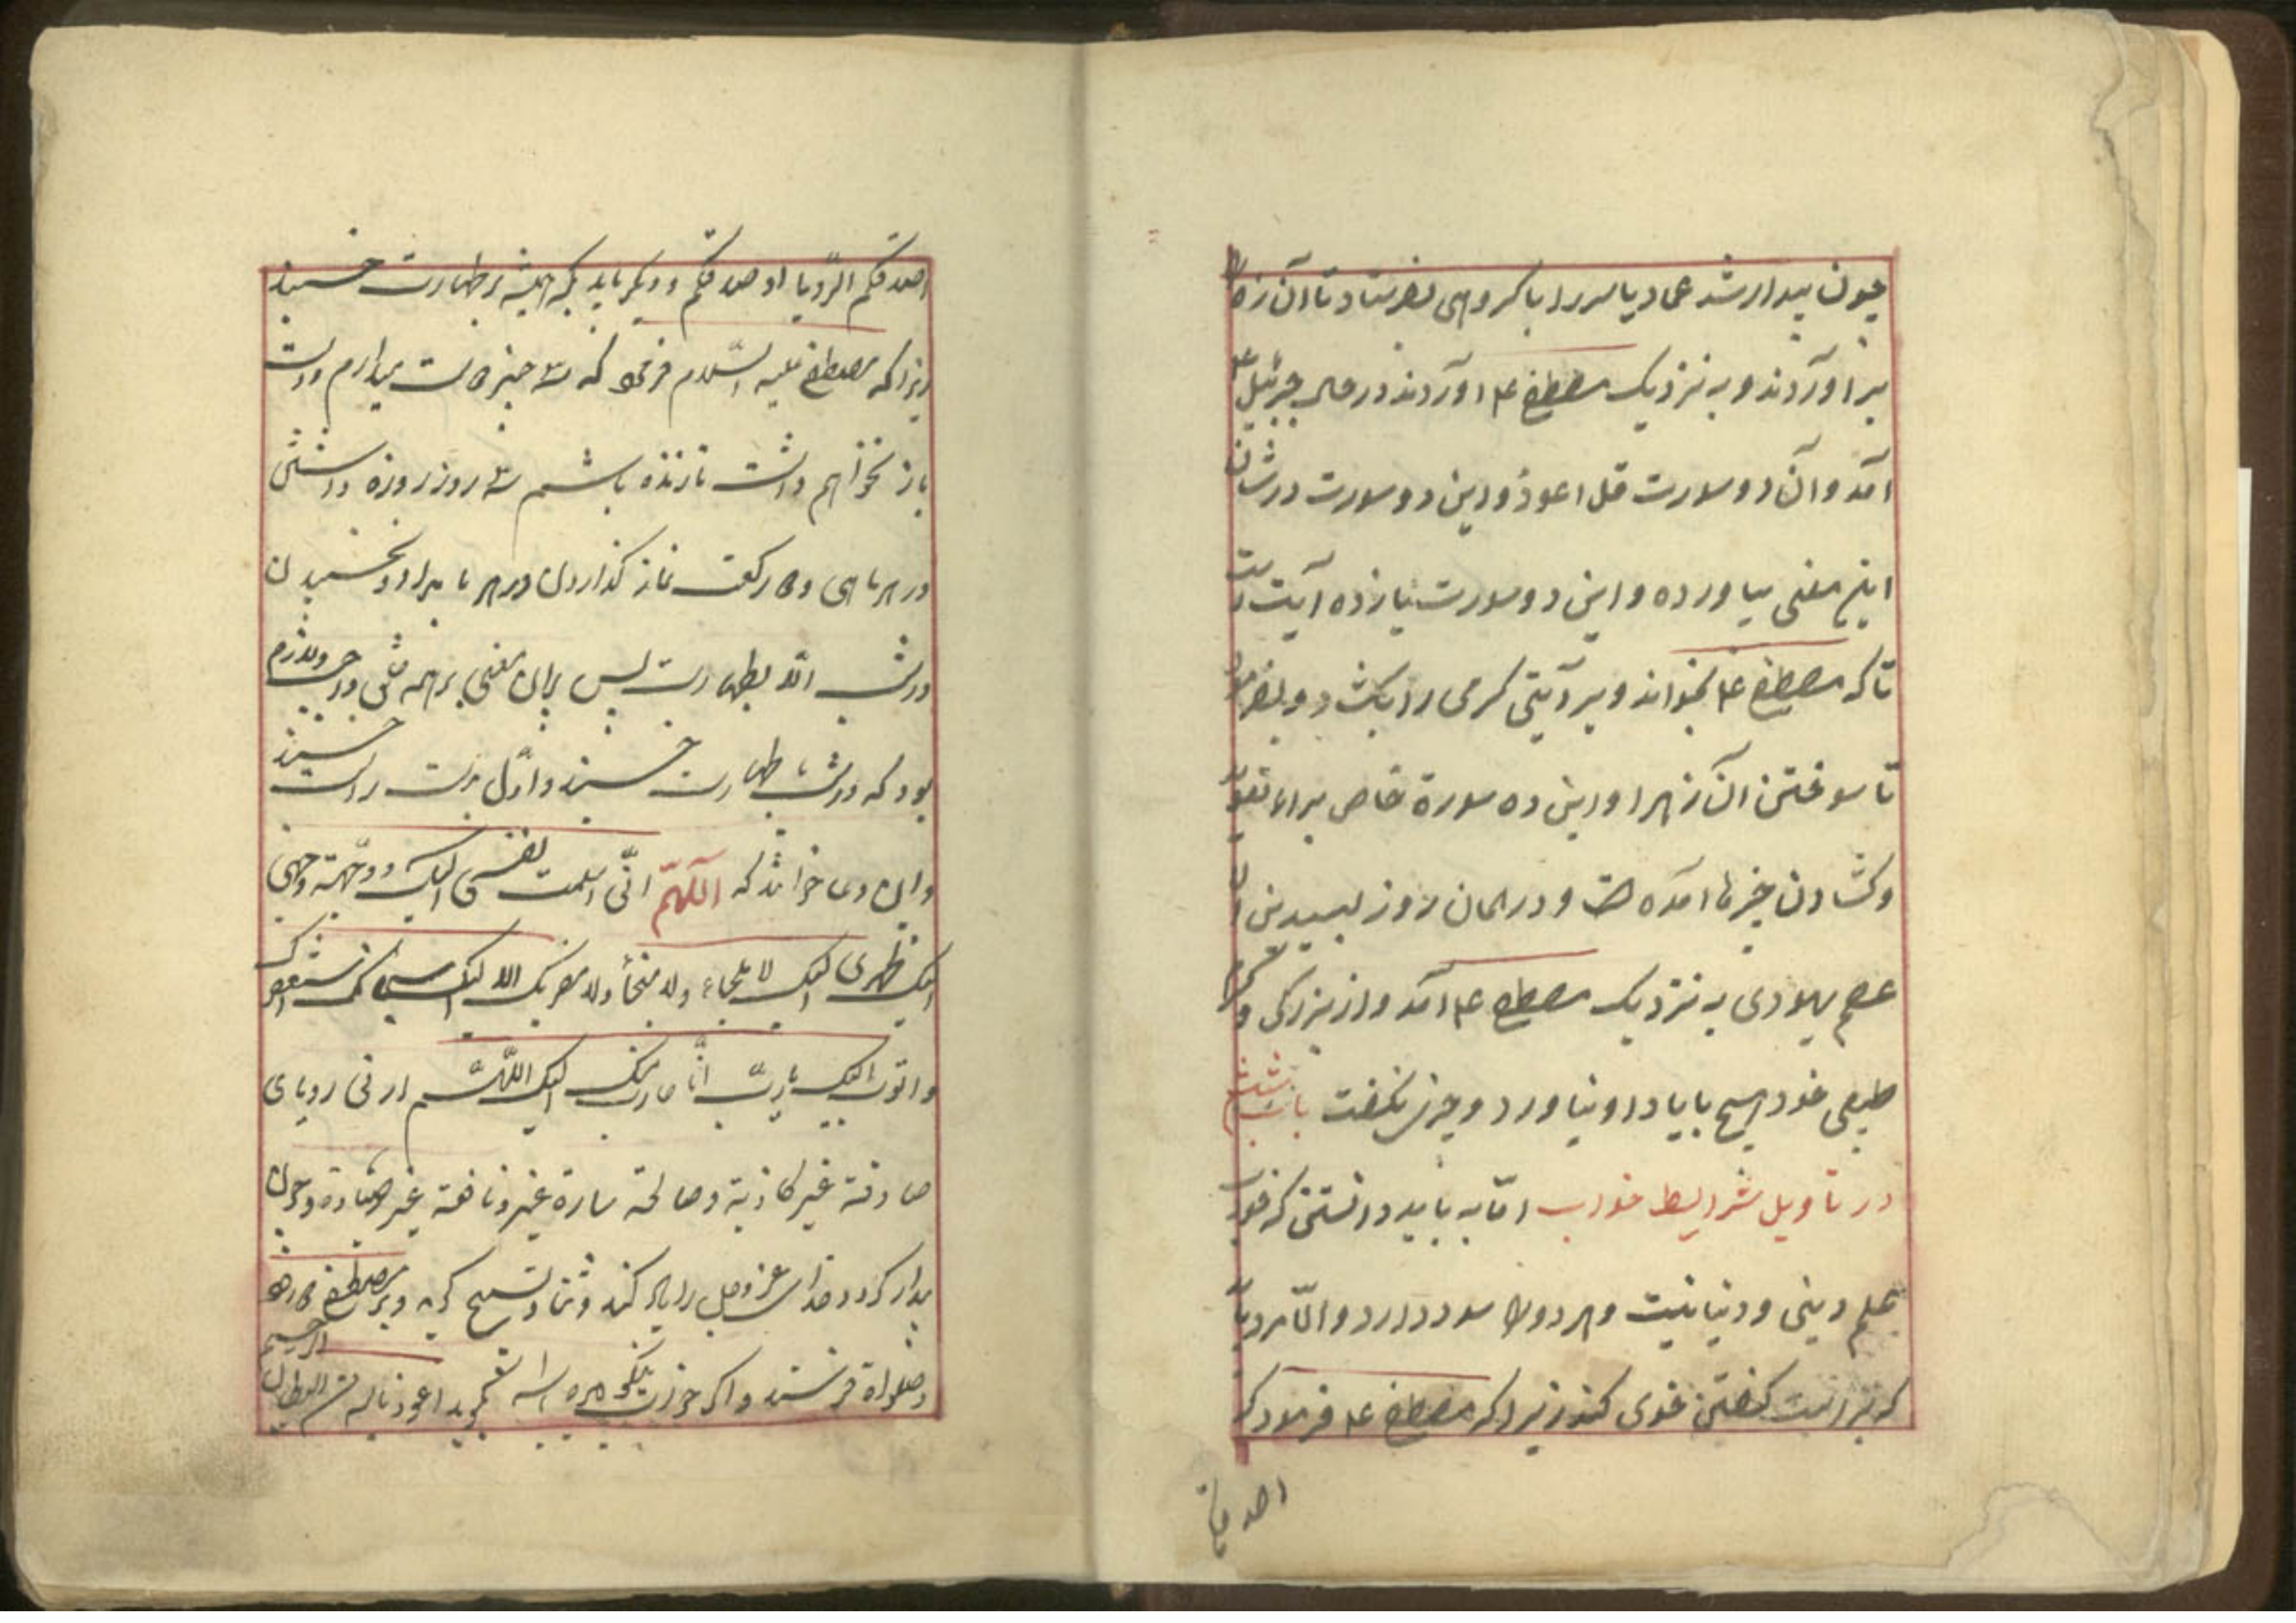 چون بیدار شد عمار یاسر را با گروهی بفرستاد تا آن زه را
بر آوردند و به نزدیک مصطفی ع م آوردند در حال جبرئیل ع م
آمد و آن دو سورت قل اعوذ و این دو سورت در شان
این معنی بیاورده و این دو سورت یازده آیت است
تا که مصطفی ع م بخواند و بر آیتی گرهی را بگشاد و بفرمود
تا سوختن آن زهرا و این ده سورة خاص برای تعویذ
و گشادن چیزها آمده است و در همان روز لبید بن ا
عصم یهودی به نزدیک مصطفی ع م آمد و از بزرگی و کرم
طبعی خود هیچ با یاد او نیاورد و چیزی نگفت باب ششم
در تاویل شرایط خواب امّا به باید دانستن که خواب
علم دینی و دنیا نیست و هر دو را سود دارد و امّا مرد باید
که بر راست گفتن خوی کند زیرا که مصطفی ع م فرمود که
اصدقکم
اصدقکم الرّویا اوصدقکم و دیگر باید که همیشه بر طهارت خسبد
زیرا که مصطفی علیه السّلام فرمود که سه چیز دست میدارم و دست
باز نخواهم داشت تا زنده باشم سه روز روزه داشتن
در هر ماهی و دو رکعت نماز گذاردن در هر بامداد و نخسبیدن
در شب الّا بطهارت پس برای معنی بر همه واجب و لازم
بود که در شب بطهارت خسبند و اوّل بر دست راست خسبند
و این دعا خوانند که اللّهمّ انّی اسلمت نفسی الیک و وجّهت وجهی
الیک ظهری الیک لا ملجاء ولا منجأ ولا مهربک الا الیک استغفرک
و اتوب الیک یا ربّ انّا الیک اللّهمّ ارنی رویای
صادقة غیر کاذبة و صالحة سارة غیر و نافعة غیر ضارة و چون
بیدار گردد خدای عزّ و جل را یاد کند و ثنا و تسبیح گوید و بر مصطفی
و صلواة فرستد و اگر خوابی بگوید اعوذ بالله من الشیطان الرجیم